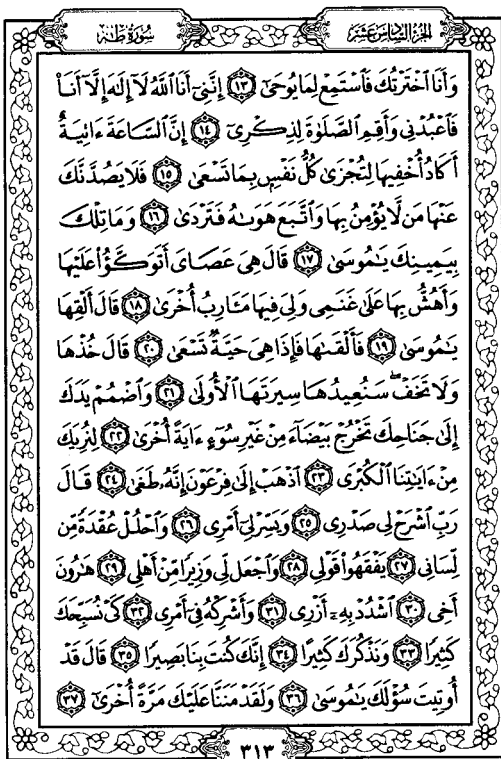 سُورَةُ طه
الجُزْءُ السَّادِسَ عَشَرَ
وَأَنَا ٱخْتَرْتُكَ فَٱسْتَمِعْ لِمَا يُوحَىٰٓ ١٣ إِنَّنِىٓ أَنَا ٱللَّهُ لَآ إِلَٰهَ إِلَّآ أَنَا۠
فَٱعْبُدْنِى وَأَقِمِ ٱلصَّلَوٰةَ لِذِكْرِىٓ ١٤ إِنَّ ٱلسَّاعَةَ ءَاتِيَةٌ
أَكَادُ أُخْفِيهَا لِتُجْزَىٰ كُلُّ نَفْسٍۭ بِمَا تَسْعَىٰ ١٥ فَلَا يَصُدَّنَّكَ
عَنْهَا مَن لَّا يُؤْمِنُ بِهَا وَٱتَّبَعَ هَوَىٰهُ فَتَرْدَىٰ ١٦ وَمَا تِلْكَ
بِيَمِينِكَ يَٰمُوسَىٰ ١٧ قَالَ هِىَ عَصَاىَ أَتَوَكَّؤُا۟ عَلَيْهَا
وَأَهُشُّ بِهَا عَلَىٰ غَنَمِى وَلِىَ فِيهَا مَـَٔارِبُ أُخْرَىٰ ١٨ قَالَ أَلْقِهَا
يَٰمُوسَىٰ ١٩ فَأَلْقَىٰهَا فَإِذَا هِىَ حَيَّةٌ تَسْعَىٰ ٢٠ قَالَ خُذْهَا
وَلَا تَخَفْ ۖ سَنُعِيدُهَا سِيرَتَهَا ٱلْأُولَىٰ ٢١ وَٱضْمُمْ يَدَكَ
إِلَىٰ جَنَاحِكَ تَخْرُجْ بَيْضَآءَ مِنْ غَيْرِ سُوٓءٍ ءَايَةً أُخْرَىٰ ٢٢ لِنُرِيَكَ
مِنْ ءَايَٰتِنَا ٱلْكُبْرَى ٢٣ ٱذْهَبْ إِلَىٰ فِرْعَوْنَ إِنَّهُۥ طَغَىٰ ٢٤ قَالَ
رَبِّ ٱشْرَحْ لِى صَدْرِى ٢٥ وَيَسِّرْ لِىٓ أَمْرِى ٢٦ وَٱحْلُلْ عُقْدَةً مِّن
لِّسَانِى ٢٧ يَفْقَهُوا۟ قَوْلِى ٢٨ وَٱجْعَل لِّى وَزِيرًا مِّنْ أَهْلِى ٢٩ هَٰرُونَ
أَخِى ٣٠ ٱشْدُدْ بِهِۦٓ أَزْرِى ٣١ وَأَشْرِكْهُ فِىٓ أَمْرِى ٣٢ كَىْ نُسَبِّحَكَ
كَثِيرًا ٣٣ وَنَذْكُرَكَ كَثِيرًا ٣٤ إِنَّكَ كُنتَ بِنَا بَصِيرًا ٣٥ قَالَ قَدْ
أُوتِيتَ سُؤْلَكَ يَٰمُوسَىٰ ٣٦ وَلَقَدْ مَنَنَّا عَلَيْكَ مَرَّةً أُخْرَىٰٓ ٣٧
٣١٣